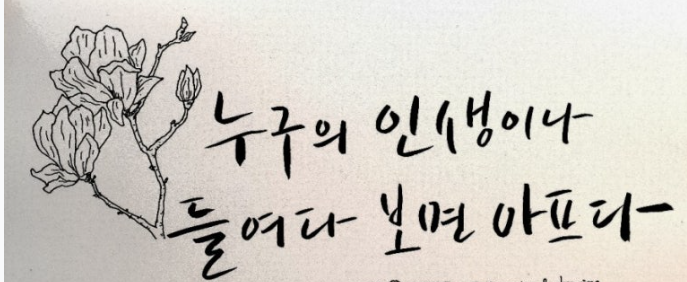 누구의 인생이나
들여다 보면 아프다